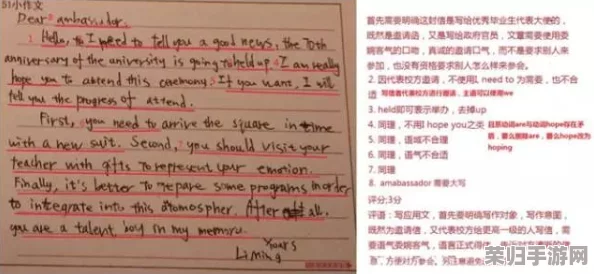 51小作文
Dear ambassador.
Hello, I need to tell you a good news, the 70th
anniversary of the university is going to held up. I am really
hope you to attend this ceremony. If you want, I will
tell you the progress of attend.
First, you need to arrive the square in time
with a new suit. Second, you should visit your
teacher with gifts to represent your emotion.
Finally, it's better to prepare some programs in order
to integrate into this atomospher. After all.
you are a talent boy in my memory.
Yours
Liming
首先需要明确这封信是写给优秀毕业生代表大使的，
既然是邀请函，又是写给政府官员，文章需要使用委
婉客气的口吻，真诚的邀请口气，而不是要求别人来
参加，也没有资格要求别人怎么样来参会。
2. 因代表校方邀请，不使用I need to 为需要，也不合
适 写信者代表校方进行邀请，主语可以使用we
3. held即可表示举办，去掉up
4. 同理，不用I hope you之类 且系动词are与动词hope存在矛
盾，要么删除are，要么hope改为
hoping
5. 同理，语域不合理
6. 同理，语气不合适
7. 同理
8. amabassador 需要大写
评分:3分
评语：写应用文，首先要明确写作对象，写作意图，
既然为邀请信，又代表校方给更高一级的人写信，需
要语气委婉客气，语言正式得体
荣归手游网